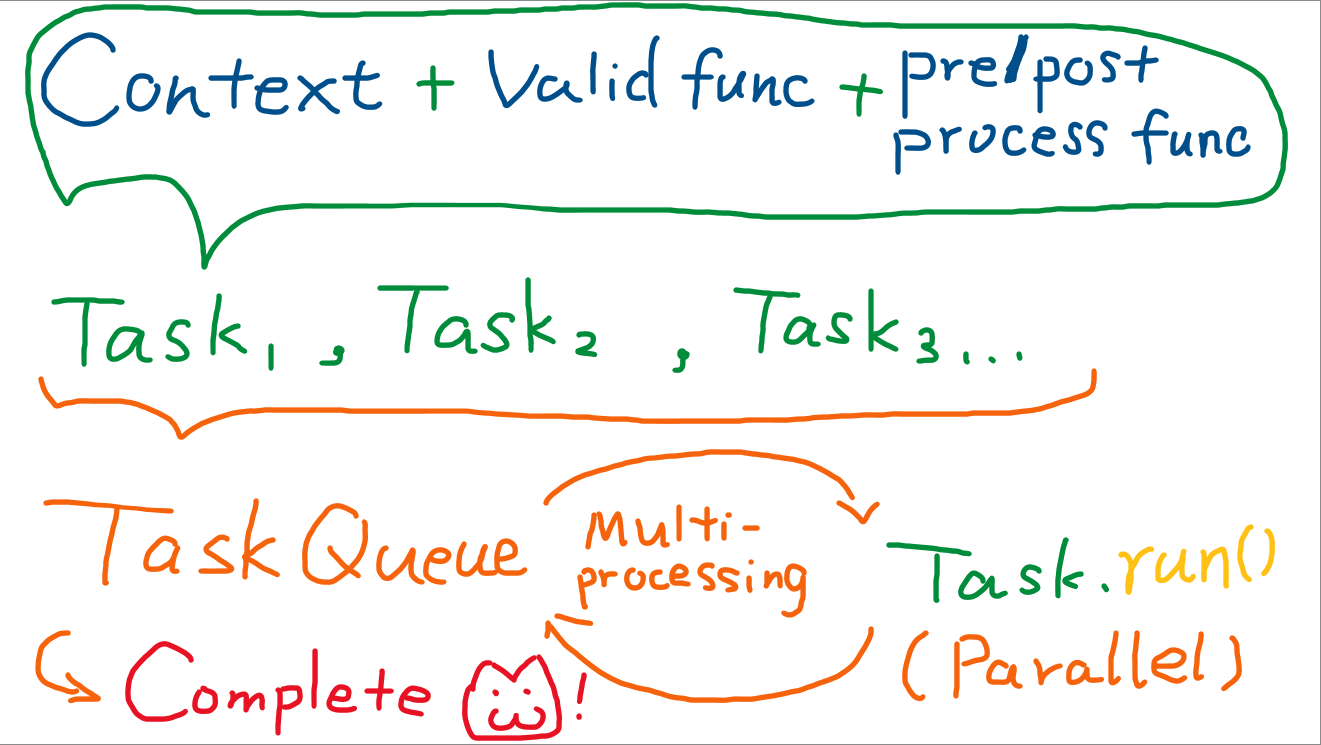 Context + Valid func + pre/post
process func
Task1, Task2, Task3...
TaskQueue
Multi-
processing
Task.run()
(Parallel)
Complete !